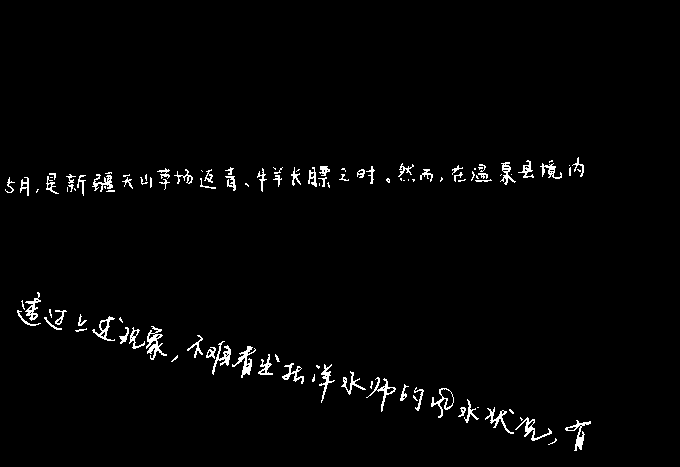 5月,是新疆天山草场返青、牛羊长膘之时。然而,在温泉县境内
透过上述现象,不难看出北洋水师的风水状况,有